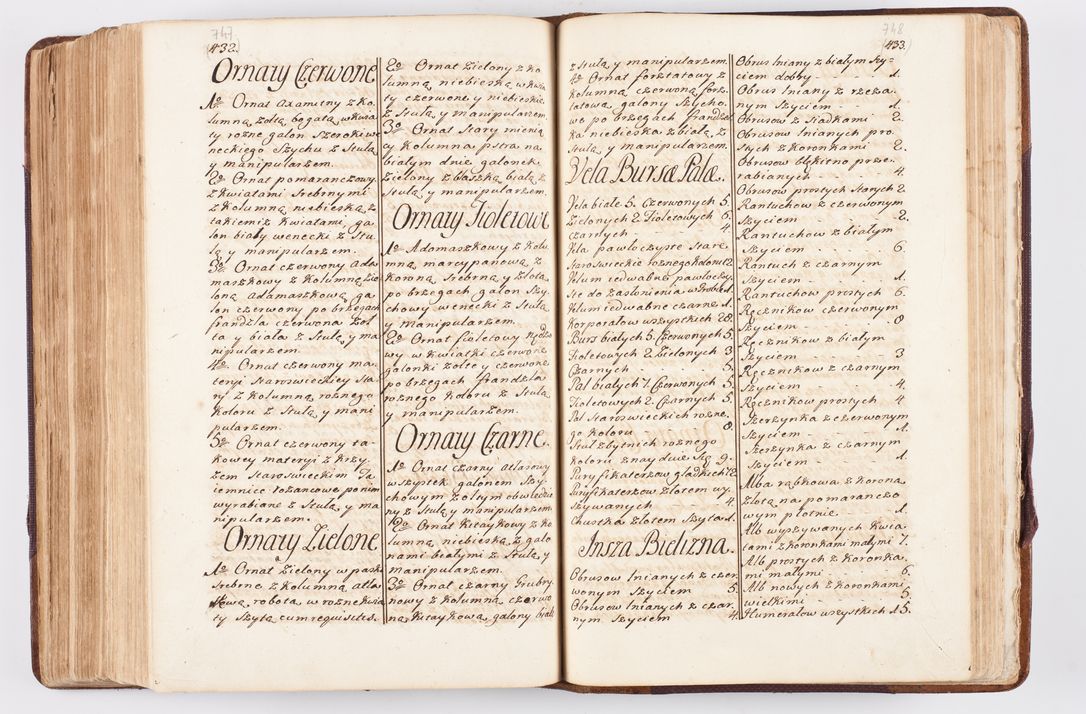 747
432.
Ornaty Czerwone.
1o Ornat Axamitny z ko
lumną żołtą bogatą w kwia
ty rożne galon szeroki we
neckiego szychu z stułą
y manipularzem.
2o Ornat pomaranczowy
z kwiatami srebrnymi
z kolumną niebieską z
takiemiż kwiatami ga
lon biały wenecki z stu
łą y manipularzem.
3o Ornat czerwony Ada
maszkowy z kolumną zie
loną Adamaszkową ga
lon czerwony po brzegach
frandzla czerwona żoł
ta y biała z stułą y ma
nipularzem.
4o Ornat czerwony ma
teryi staroswieckiey sta
ry z kolumną rożnego
koloru z stułą y mani
pularzem.
5o Ornat czerwony ta
kowey materyi z krzy
żem staroswieckim Ta
iemnice rożancowe po nim
wyrabiane z stułą y ma
nipularzem.
Ornaty Zielone
1o Ornat Zielony w paski
srebrne z kolumną atła
sową robota w rożne kwia
ty szyta cum requisitis.
2o Ornat zielony z ko
lumną niebieską w kwia
ty czerwone y niebieskie
z stułą y manipularzem.
3o Ornat stary mienią
cy kolumna pstra na
białym dnie galonek
zielony z blaszką białą z
stułą y manipularzem.
Ornaty Fioletowe
1o Adamaszkowy z kolu
mną marcypanową z
koroną srebrną y złotą
po brzegach galon szy
chowy wenecki z stułą
y manipularzem.
2o Ornat fioletowy
wy w kwiatki czerwone
galonki żołte y czerwone
po brzegach frandzla
rożnego koloru z stułą
y manipularzem.
Ornaty Czarne.
1o Ornat czarny atłasowy
wszystek galonem szy
chowym żołtym obwiedzio
ny z stułą y manipularzem
2o Ornat kitaykowy z ko
lumną niebieską z galo
nami białymi z stułą y
manipularzem.
3o Ornat czarny Grubry
nowy z kolumną czerwo
ną kitaykową, galony biał
748
433.
z stułą y manipularzem.
4o Ornat forsztatowy z
kolumną czerwoną forsz
tatową galony szycho
we po brzegach frandzel
ka niebieska z białą z
stułą y manipularzem.
Vela Bursæ Palæ.
Vela białe 5. Czerwonych 5.
Zielonych 2. Fioletowych 6.
czarnych 4.
Vela pawłoczyste stare
staroswieckie rożnego koloru 12.
Velum iedwabne pawłoczy
ste do zasłonienia w Grobie 1.
Velum iedwabne czarne 1.
Korporałow wszystkich 28.
Burs białych 5. Czerwonych 5.
Fioletowych 2. Zielonych 3.
Czarnych 5.
Pal białych 7. Czerwonych 5.
Fioletowych 2. Czarnych 5.
Pal staroswieckich rożne
go koloru 8.
Stuł zbytnich rożnego
koloru znayduie się 9.
Puryfikaterzow gładkich 12.
Puryfikaterzow złotem wy
szywanych 4.
Chustka złotem szyta 1.
Insza Bielizna.
Obrusow lnianych z czer
wonym szyciem 5.
Obrusow lnianych z czar
nym szyciem 4.
Obrus lniany z białym szy=
ciem dobry 1.
Obrus lniany z rzeza
nym szyciem 1.
Obrusow z siadkami 2.
Obrusow lnianych pro
stych z koronkami 2.
Obrusow błękitno prze
rabianych 4.
Obrusow prostych starych 2.
Rantuchow z czerwonym
szyciem 2.
Rantuchow z białym
szyciem 6.
Rantuch z czarnym
szyciem 1.
Rantuchow prostych 6.
Ręcznikow czerwonym
szyciem 8
Ręcznikow z białym
szyciem 3
Ręcznikow z czarnym
szyciem 4.
Ręcznikow prostych 4
Szerzynka z czerwonym
szyciem 1.
Szerzynka z czarnym
szyciem 1.
Alba rąbkowa z koroną
złotą na pomaranczo
wym płotnie 1.
Alb wyszywanych kwia
tami z koronkami małymi 7.
Alb prostych z koronka
mi małymi 6.
Alb nowych z koronkami
wielkimi 5.
Humerałow wszystkich 15.